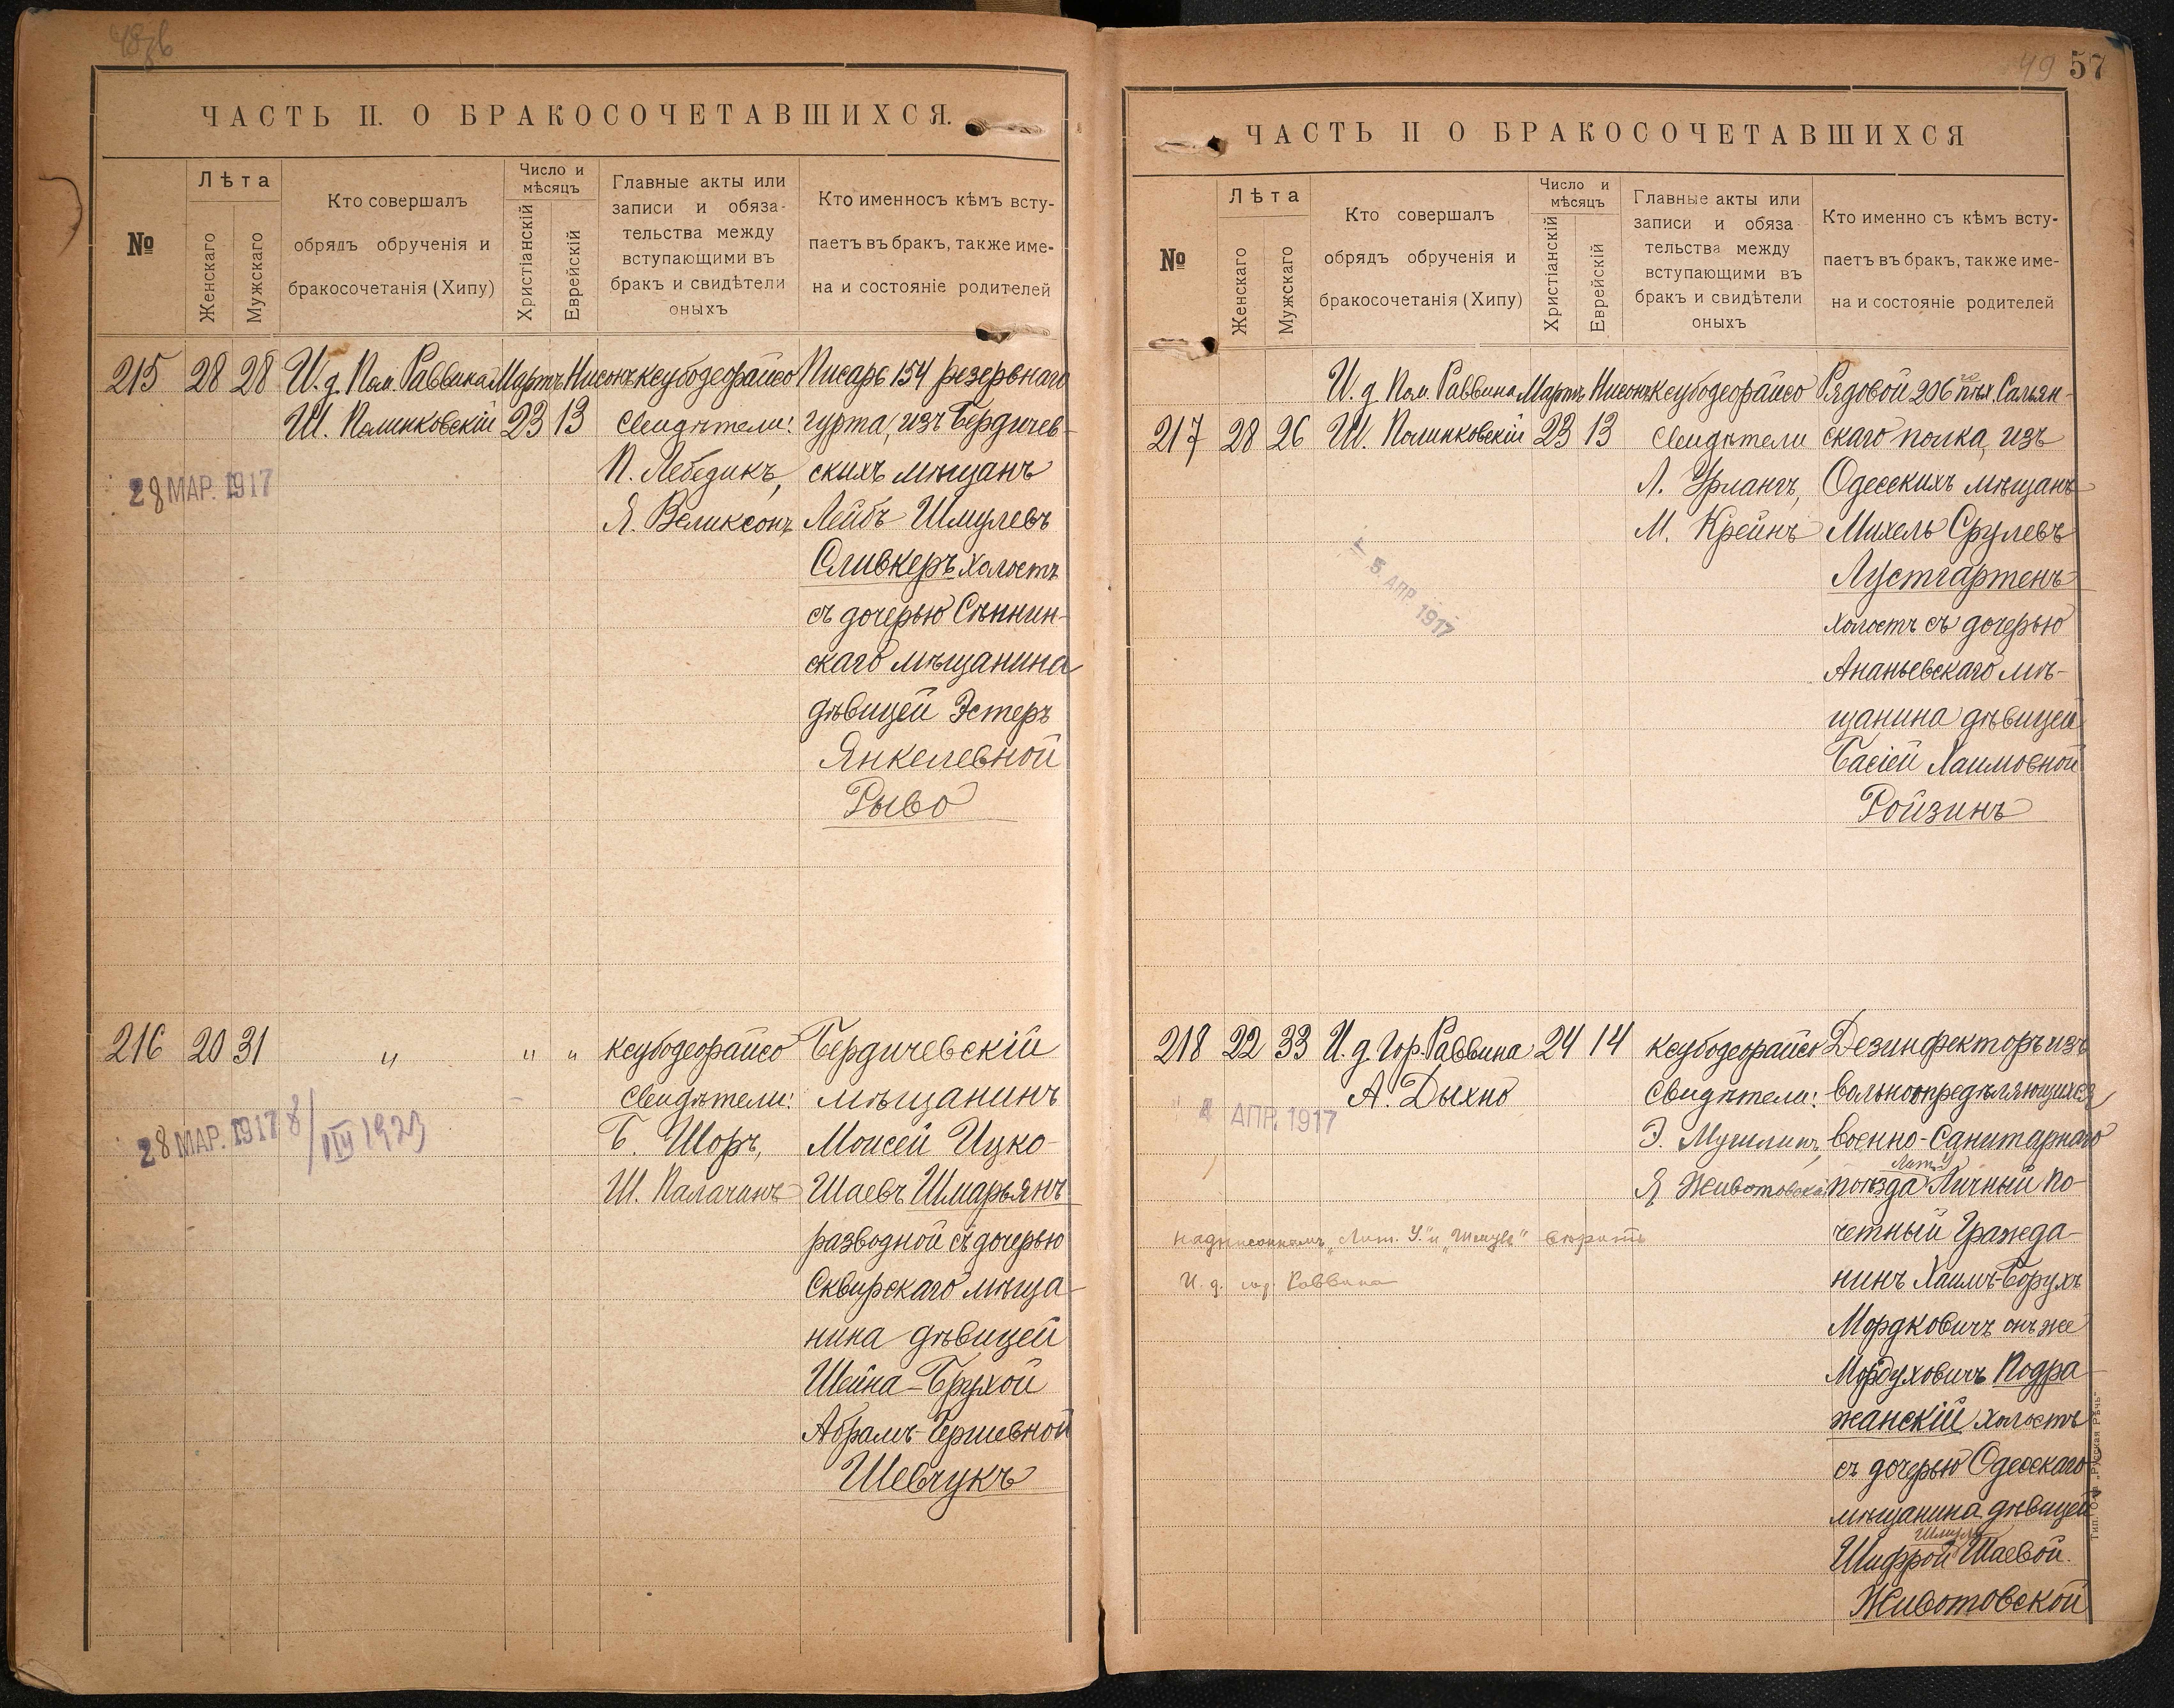 48об
ЧАСТЬ II. О БРАКОСОЧЕТАВШИХСЯ.
№
Лѣта
Женскаго
Мужскаго
Кто совершалъ
обрядъ обрученія и
бракосочетанія (Хипу)
Число и
мѣсяцъ
Христіанскій
Еврейскій
Главные акты или
записи и обяза-
тельства между
вступающими въ
бракъ и свидѣтели
оныхъ
Кто именносъ кѣмъ всту-
паетъ въ бракъ, также име-
на и состояніе родителей
215 28 28 И. д. Пом. Раввина Мартъ Нисонъ ксубодеорайсо Писарь 154 резервнаго
Ш. Полинковскій 23 13 Свидѣтели: гурта, изъ Бердичев-
28 МАР. 1917
П. Лебедикъ, скихъ мѣщанъ
Я. Великсонъ Лейбъ Шмулевъ
Сливкеръ холостъ
съ дочерью Сѣннин-
скаго мѣщанина
дѣвицей Эстеръ
Янкелевной
Рыво
216 20 31 " " " ксубодеорайсо Бердичевскій
Свидѣтели: мѣщанинъ
28 МАР. 1917 8/III 1923
Б. Шоръ, Моисей Ицко-
Ш. Палачинъ Шаевъ Шмарьянъ
разводной съ дочерью
Сквирскаго мѣща-
нина дѣвицей
Шейна-Брухой
Абрамъ-Гершевной
Шевчукъ
49 57
ЧАСТЬ II О БРАКОСОЧЕТАВШИХСЯ
№
Лѣта
Женскаго
Мужскаго
Кто совершалъ
обрядъ обрученія и
бракосочетанія (Хипу)
Число и
мѣсяцъ
Христіанскій
Еврейскій
Главные акты или
записи и обяза-
тельства между
вступающими въ
бракъ и свидѣтели
оныхъ
Кто именно съ кѣмъ всту-
паетъ въ бракъ, также име-
на и состояніе родителей
И. д. Пом. Раввина Мартъ Нисонъ ксубодеорайсо Рядовой 206го пѣх. Сальян-
217 28 26 Ш. Полинковскій 23 13 Свидѣтели скаго полка, изъ
Л. Урлангъ, Одесскихъ мѣщанъ
М. Крейнъ Михель Срулевъ
5 АПР. 1917
Лустгартенъ
холостъ съ дочерью
Ананьевскаго мѣ-
щанина дѣвицей
Басіей Хаимовной
Ройзинъ
218 22 33 И. д. Гор. Раввина 24 14 ксубодеорайсо Дезинфекторъ изъ
А. Дыхно Свидѣтели: вольноопредѣляющихся
4 АПР. 1917
Э. военно-Санитарнаго
Я Животовскій поѣзда Лит. У Личный По-
четный Гражда-
надписанномъ „Лит. У." и „Шмуль" вѣрить
И. д. гор. Раввина
нинъ Хаимъ-Борухъ
Мордковичъ онъ же
Мордуховичъ Подра-
жанскій холостъ
съ дочерью Одесскаго
мѣщанина дѣвицей
Шифрой Шмуль Шаевой
Животовской
Тип. О-ва „Русская Рѣчь"